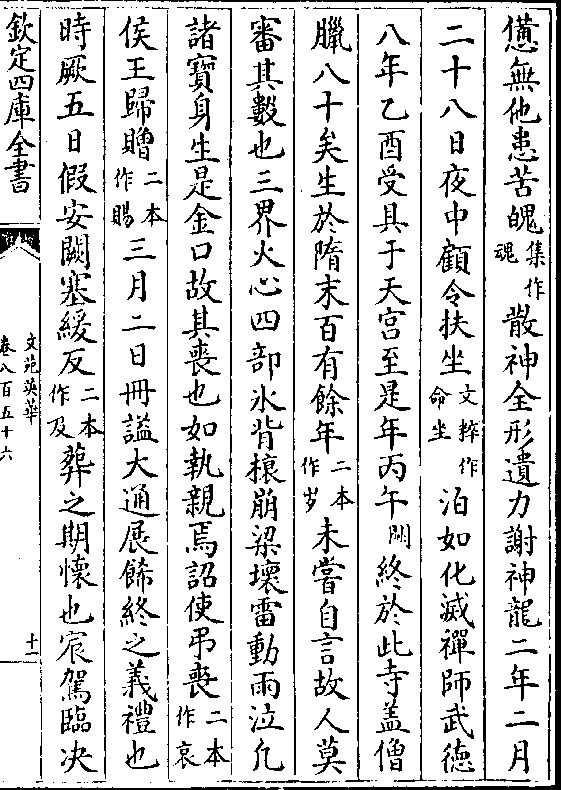 憊無他患苦魄集作魂散神全形遺力謝神龍二年二月
二十八日夜中顧令扶坐文粹作命坐泊如化滅禪師武德
八年乙酉受具于天宮至是年丙午闕終於此寺盖僧
臘八十矣生於隋末百有餘年二本作岁未嘗自言故人莫
審其數也三界火心四部氷背榱崩梁壞雷動雨泣凡
諸寶身生是金口故其喪也如執親焉詔使弔喪二本作哀
侯王歸贈二本作賜三月二日冊諡大通展飾終之義禮也
時厥五日假安闕塞緩反二本作及葬之期懷也宸駕臨决
欽定四庫全書
文苑英華
卷八百五十六
十一